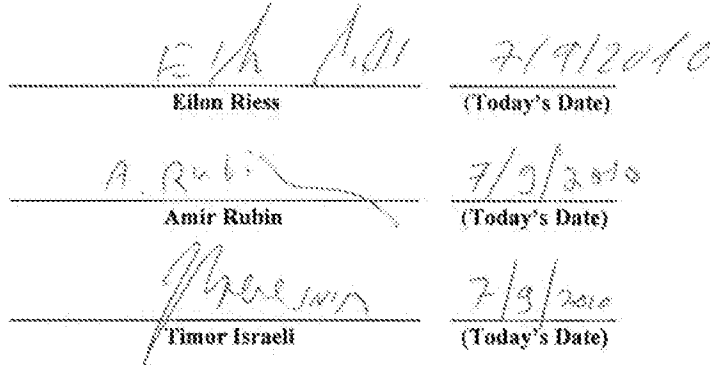 7/9/2010
Eilon Riess (Today's Date)
A. Rubin 7/9/2010
Amir Rubin (Today's Date)
7/9/2010
Timor Israeli (Today's Date)